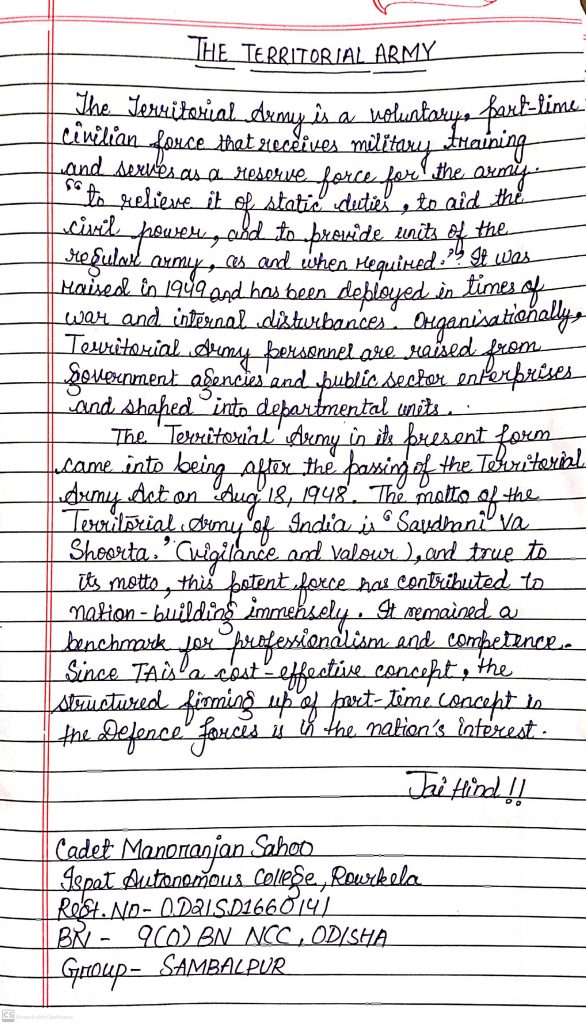 THE TERRITORIAL ARMY
The Territorial Army is a voluntary, part-time
civilian force that receives military training
and serves as a reserve force for the army.
"to relieve it of static duties, to aid the
civil power, and to provide units of the
regular army, as and when required." It was
raised in 1949 and has been deployed in times of
war and internal disturbances. Organisationally,
Territorial Army personnel are raised from
government agencies and public sector enterprises
and shaped into departmental units.
The Territorial Army in its present form
came into being after the passing of the Territorial
Army Act on Aug 18, 1948. The motto of the
Territorial Army of India is 'Savdhani Va
Shoorta.' (vigilance and valour), and true to
its motto, this potent force has contributed to
nation-building immensely. It remained a
benchmark for professionalism and competence.
Since TA is a cost-effective concept, the
structured firming up of part-time concept in
the Defence forces is in the nation's interest.
Jai Hind!!
Cadet Manoranjan Sahoo
Ispat Autonomous College, Rourkela
Regt. No- OD21SD1660141
BN - 9(O) BN NCC, ODISHA
Group- SAMBALPUR
CS